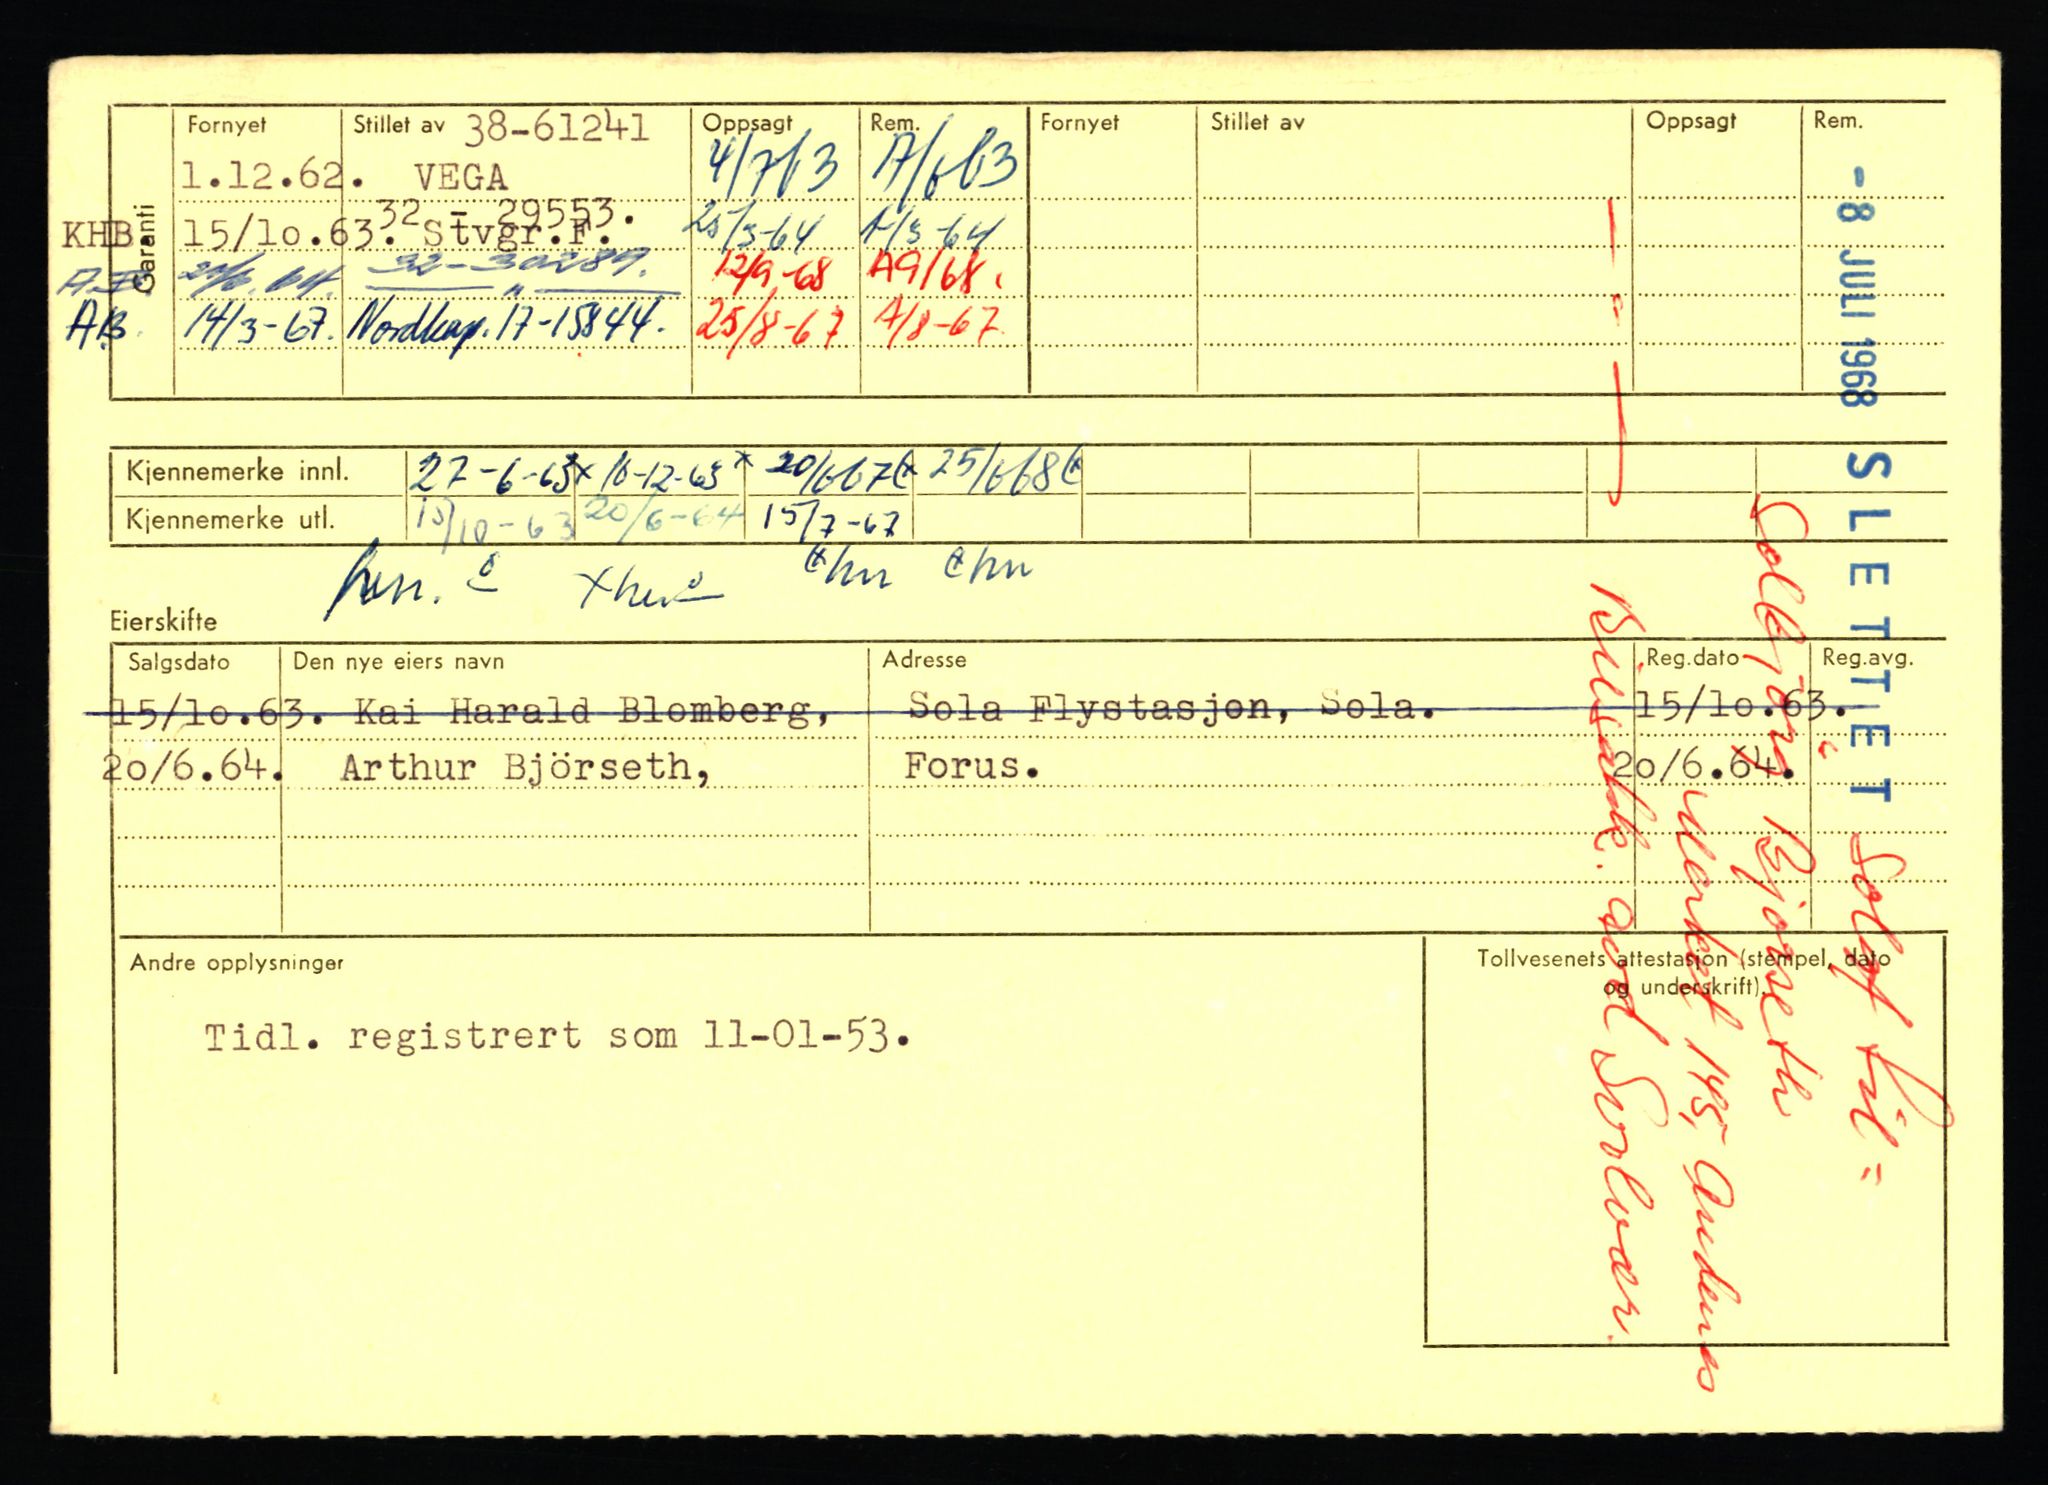 Garanti
Fornyet Stillet av 38-61241 Oppsagt Rem. Fornyet Stillet av Oppsagt Rem.
1.12.62. VEGA 4/7 63 A/6 63
32 - 29553.
KHB. 15/10.63. Stvgr.F. 25/3-64 A/3-64
32-30289. 12/9-68 A9/68.
A.B. 14/3-67. Nordkap. 17-15844. 25/8-67 A/8-67
Kjennemerke innl. 27-6-63 x 16-12-63 x 20/6 67 25/6 68
Kjennemerke utl. 15/10-63 20/6-64 15/7-67
Eierskifte
Salgsdato Den nye eiers navn Adresse Reg.dato Reg.avg.
15/10.63. Kai Harald Blomberg, Sola Flystasjon, Sola. 15/10.63.
20/6.64. Arthur Björseth, Forus. 20/6.64.
Andre opplysninger
Tidl. registrert som 11-01-53.
Tollvesenets attestasjon (stempel, dato
og underskrift).
- 8 JULI 1968 SLETTET Solgt til =
Solbjörg Bjørseth
Merket 145, Andenes
Bilsakk. Nord Svolvær.